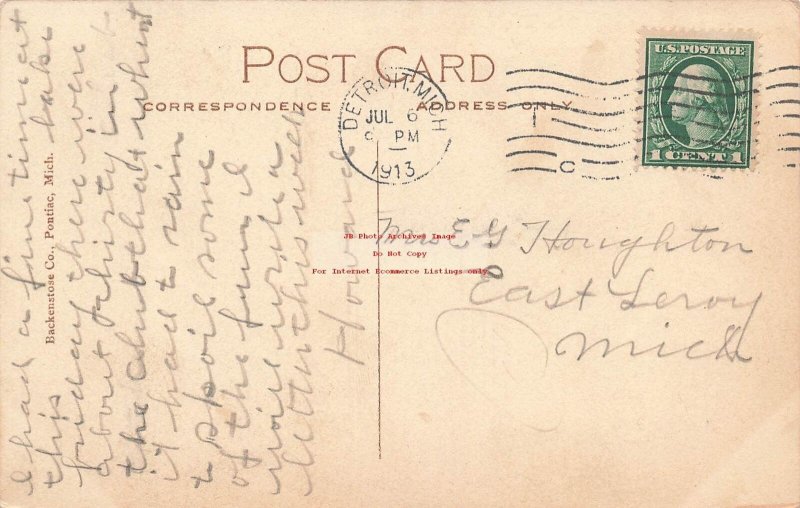 POST CARD
CORRESPONDENCE
ADDRESS ONLY
DETROIT, MICH
JUL 6
PM
1913
C
U.S. POSTAGE
1 CENT 1
Backenstose Co., Pontiac, Mich.
I had a fine time at
this lake
friday there were
about thirty in
the club that went
it had to rain
to spoil some
of the fun I
will write a
letter this week
Howard
Mrs E G Houghton
East Leroy
Mich
JB Photo Archives Image
Do Not Copy
For Internet Ecommerce Listings only